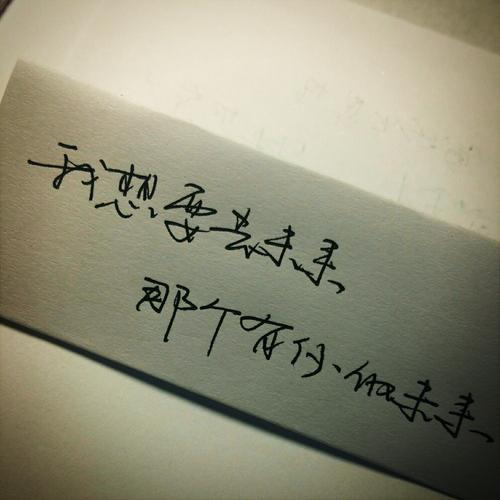 我想要去未来
那个有你的未来